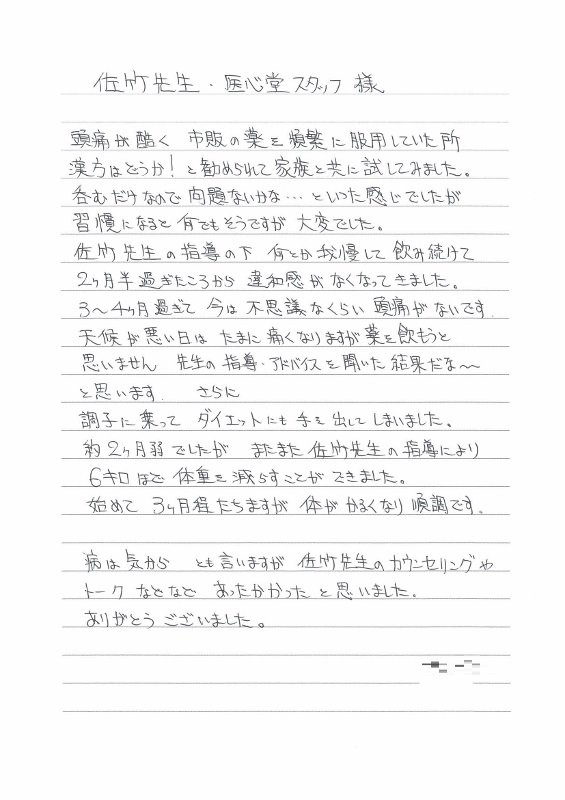 佐竹先生・医心堂スタッフ様
頭痛が酷く 市販の薬を頻繁に服用していた所
漢方はどうか！と勧められて家族と共に試してみました。
呑むだけなので問題ないかな…といった感じでしたが
習慣になると何でもそうですが 大変でした。
佐竹先生の指導の下 何とか我慢して飲み続けて
2ヶ月半過ぎたころから 違和感がなくなってきました。
3〜4ヶ月過ぎて 今は不思議なくらい 頭痛がないです.
天候が悪い日は たまに痛くなりますが薬を飲もうと
思いません 先生の指導・アドバイスを聞いた結果だな〜
と思います. さらに
調子に乗って ダイエットにも手を出してしまいました。
約2ヶ月弱でしたが またまた佐竹先生の指導により
6キロほど体重を減らすことができました。
始めて 3ヶ月程たちますが 体がかるくなり順調です.
病は気から とも言いますが 佐竹先生のカウンセリングや
トーク などなど あったかかったと思いました.
ありがとうございました。